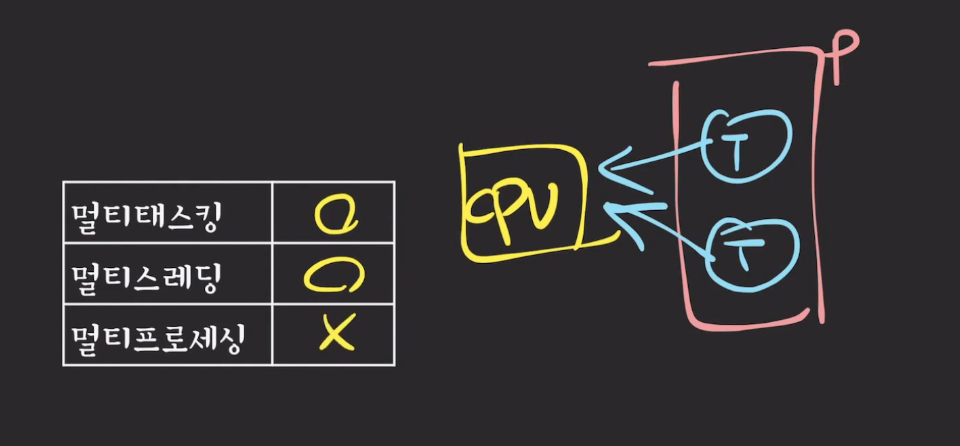 멀티태스킹 O
멀티스레딩 O
멀티프로세싱 X
CPU
P
T
T